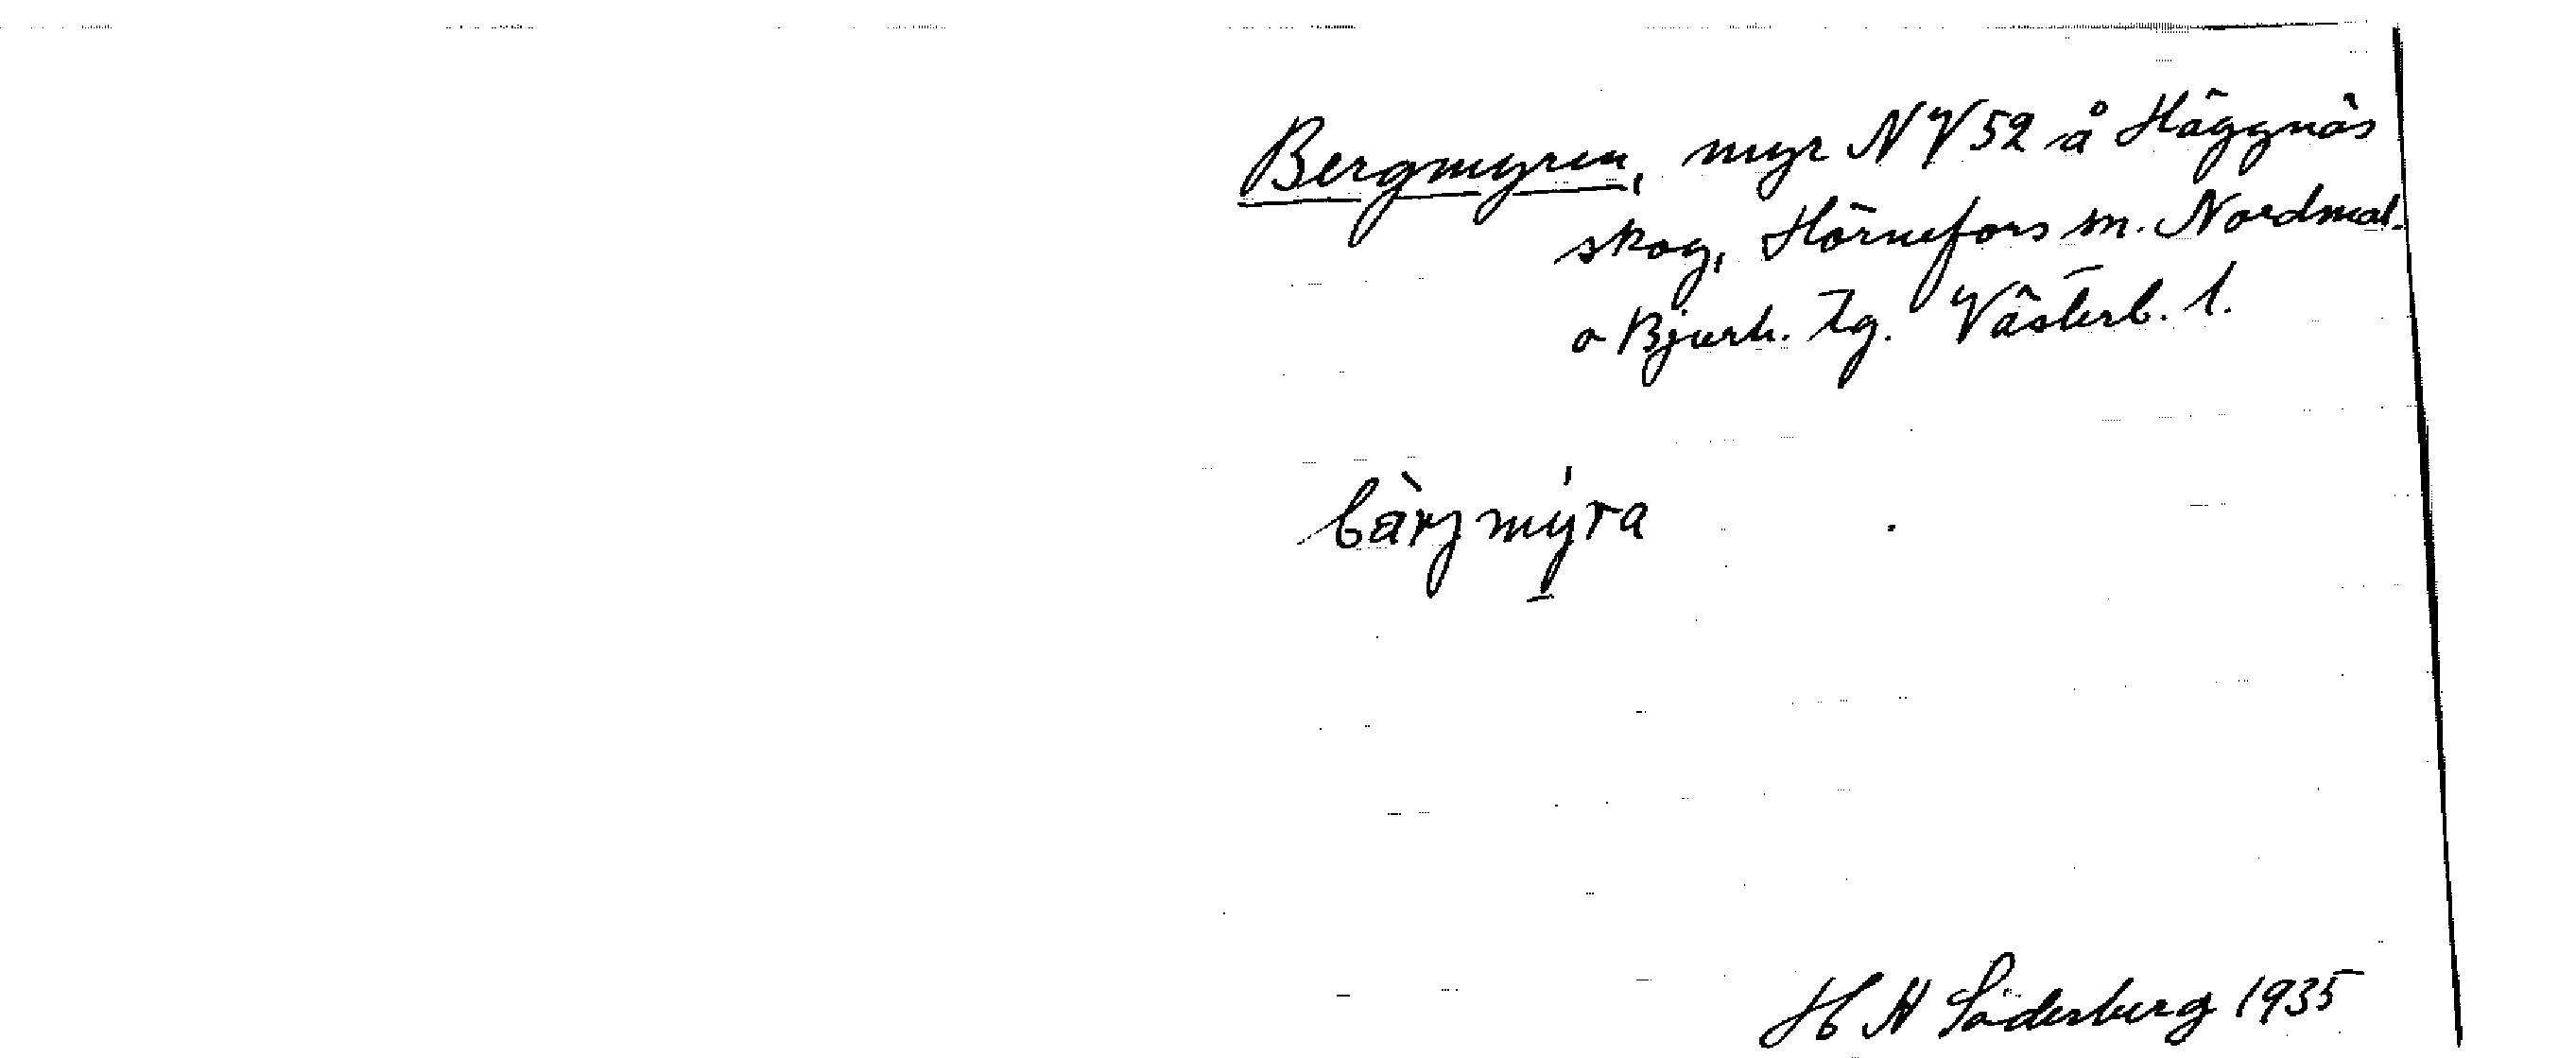 Bergmyren, myr NV 52 å Häggnäs
skog, Hörnefors sn. Nordmal.
o Bjurh. tg. Västerb. l.
bàrjmýra
H N Söderberg 1935